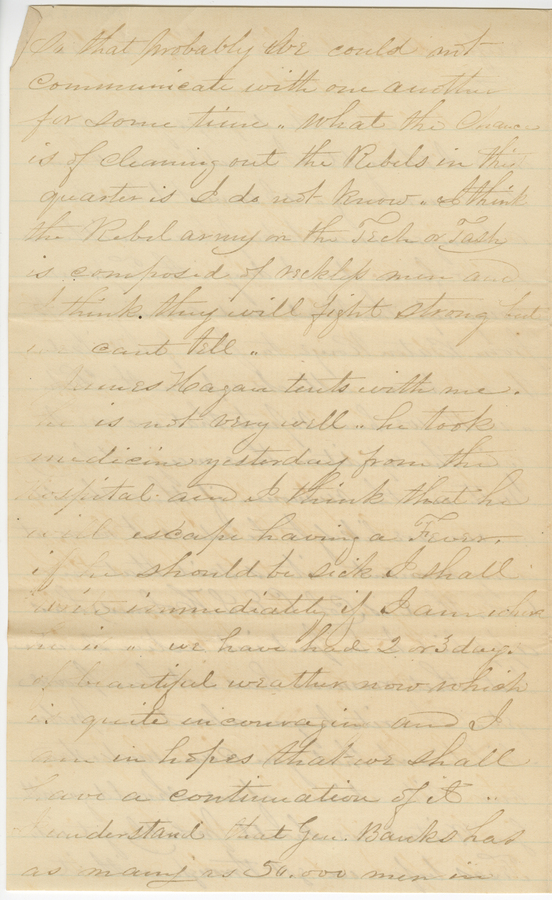 So that probably We could not
communicate with one another
for some time " What the Chance
is of cleaning out the Rebels in this
quarter is I do not know. I think
the Rebel army on the Tech or Tash
is composed of reckless men and
I think they will fight strong but
cant tell "
James Hagan tents with me.
he is not very well " he took
medicine yesterday from the
hospital and I think that he
will escape having a Fever.
if he should be sick I shall
write immediately if I am where
" we have had 2 or 3 days
of beautiful weather now which
is quite incouragin and I
am in hopes that we shall
have a continuation of it "
I understand that Gen. Banks has
as many as 50.000 men in